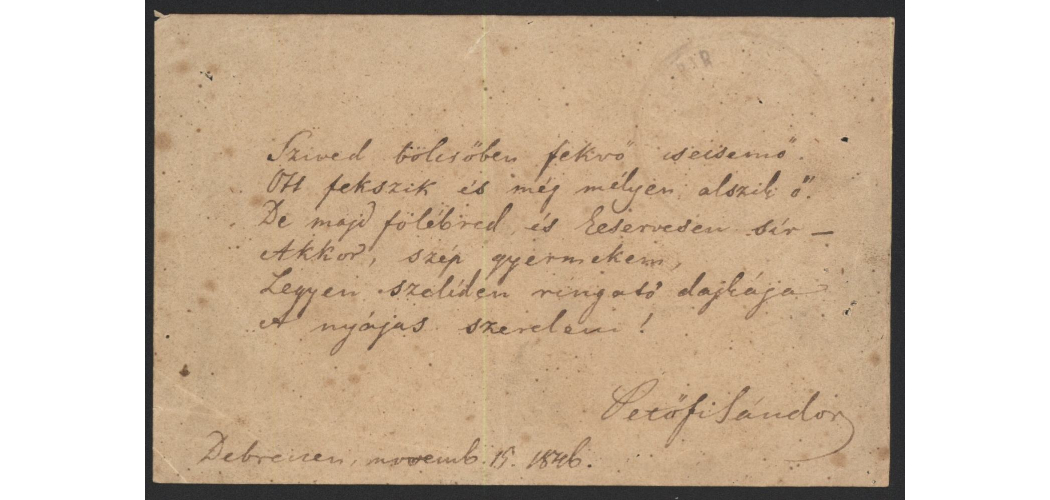 Szived bölcsőben fekvő csecsemő.
Ott fekszik és még mélyen alszik ő.
De majd fölébred, és keservesen sír —
Akkor, szép gyermekem,
Legyen szelíden ringató dajkája
A nyájas szerelem!
Petőfi Sándor
Debreczen, novemb. 15. 1846.